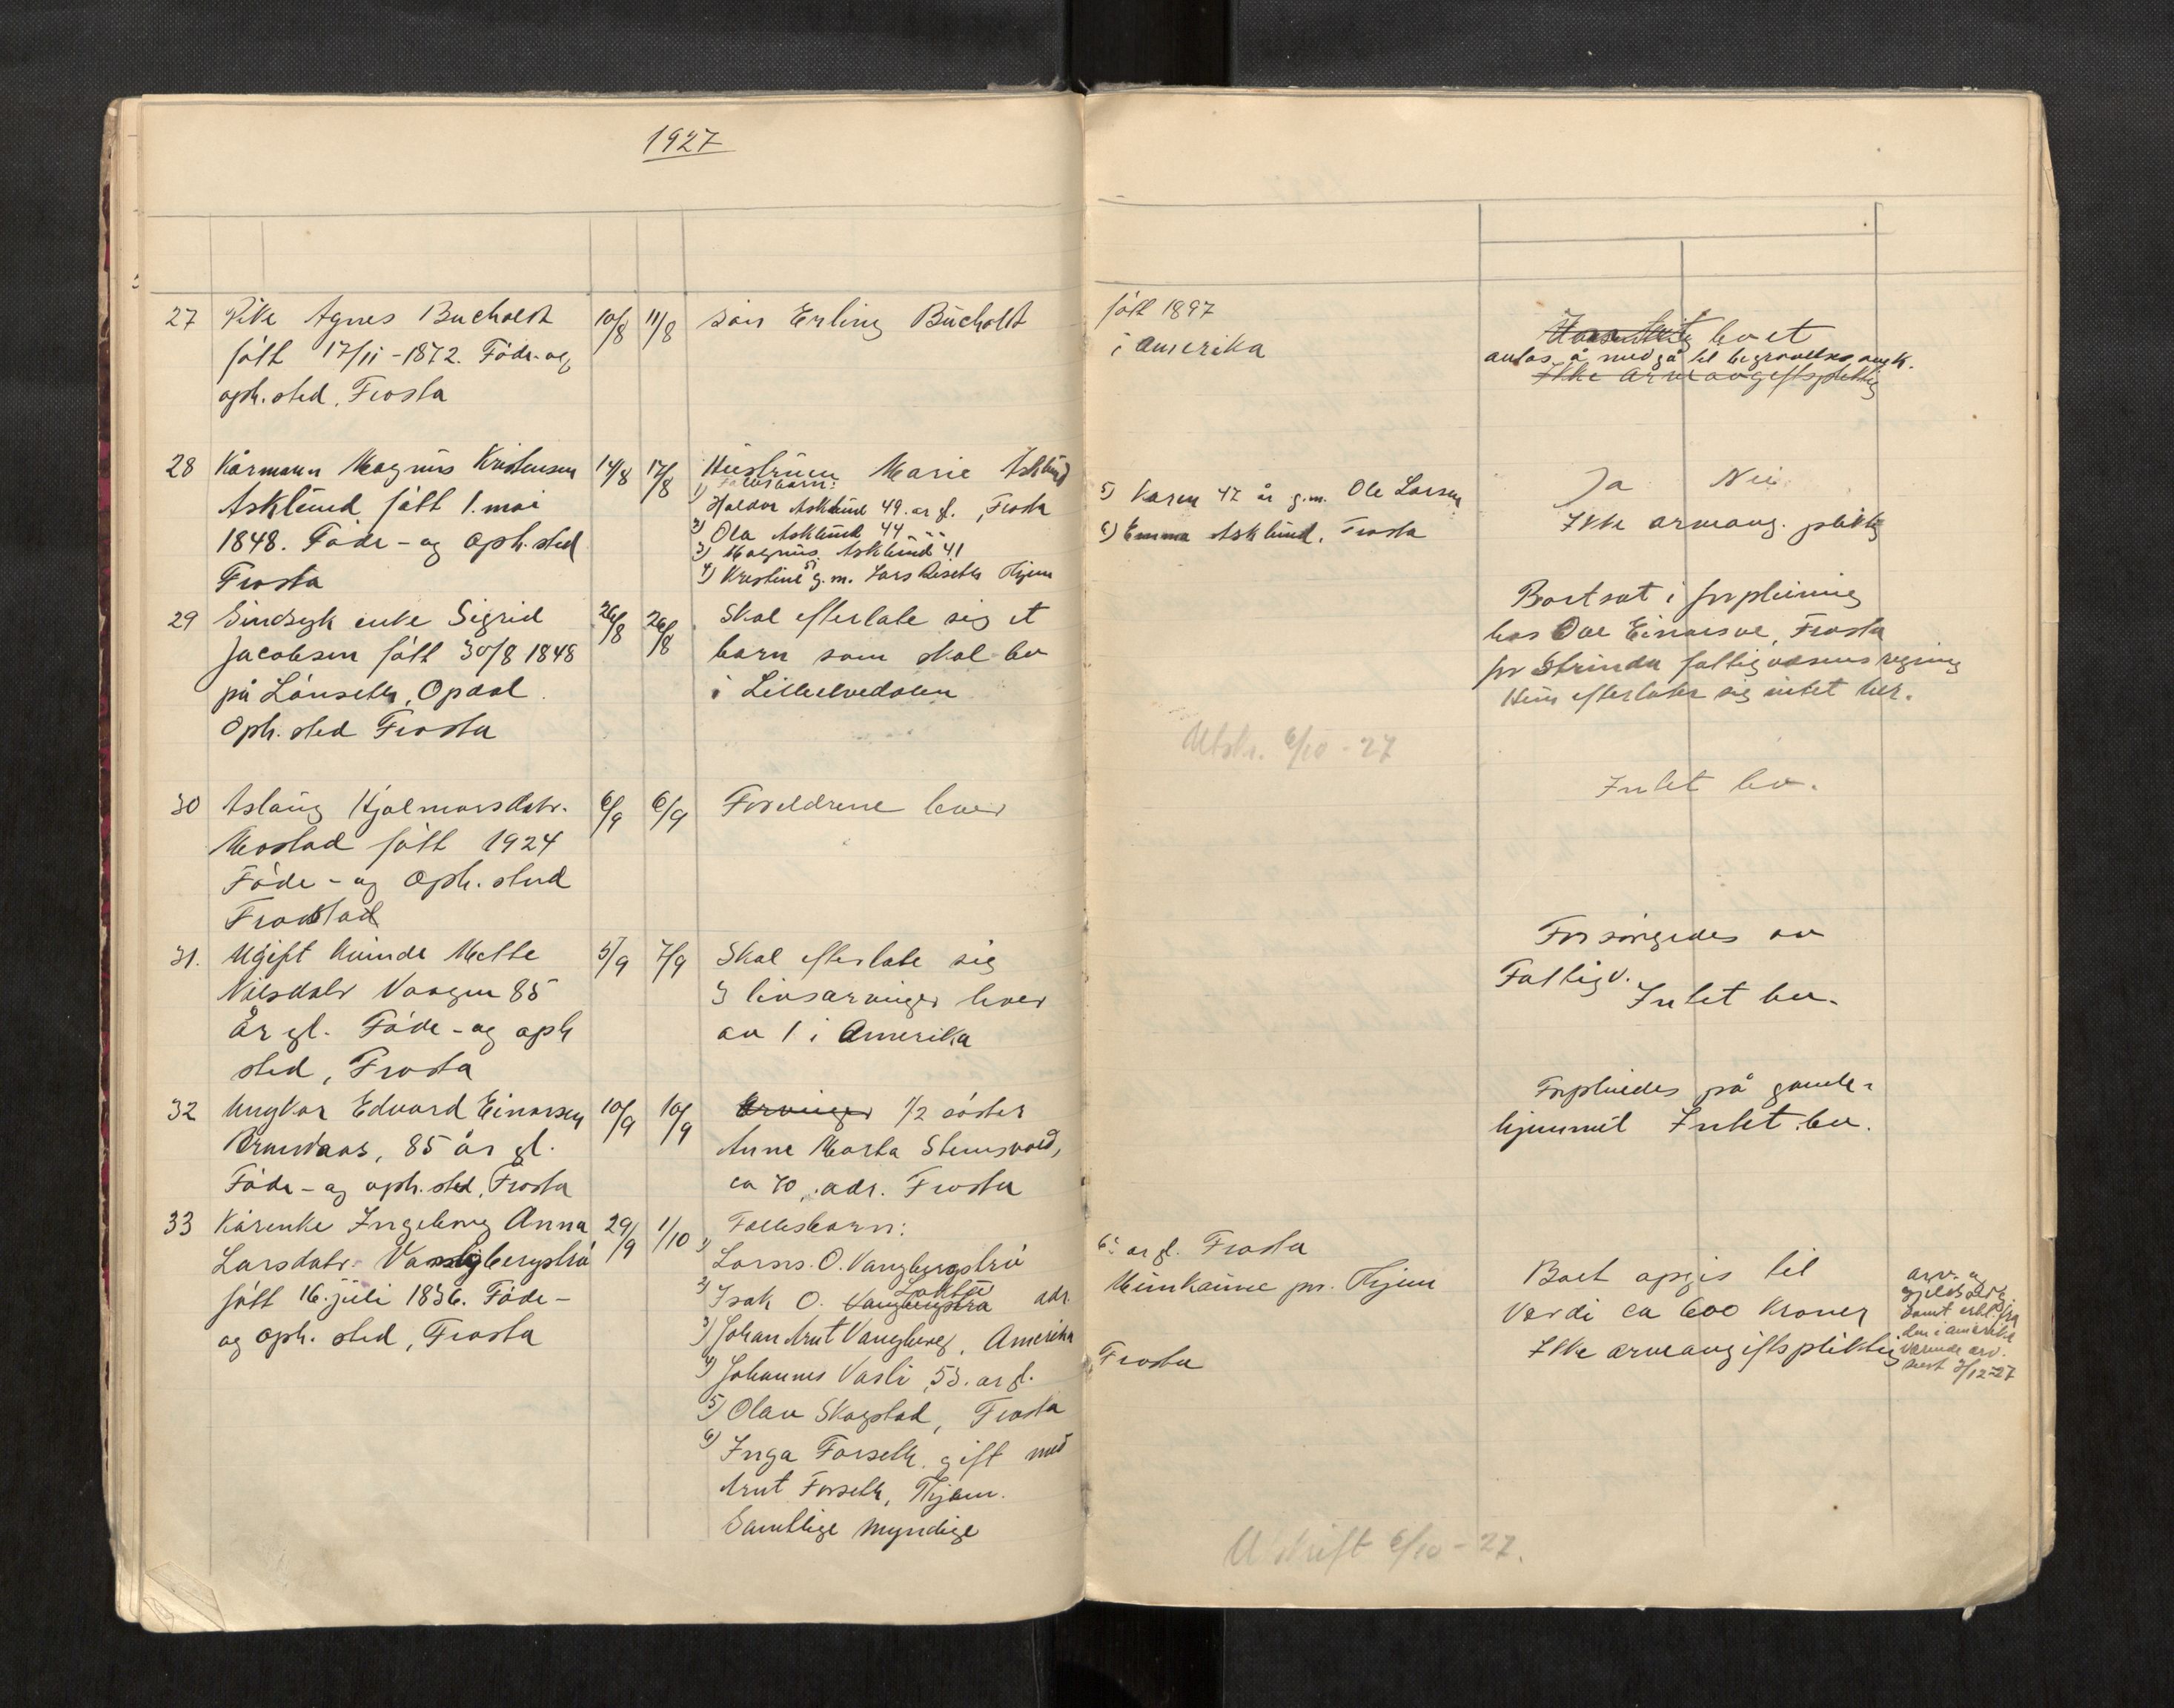 1927
27 Pike Agnes Bucholdt 10/8 11/8 søn Erling Bucholdt født 1897
født 17/11 - 1872. Føde- og i Amerika
oph. sted, Frosta
boet
antas å medgå til begravelses
Ikke arveavgiftspliktig
28 Kårmann Magnus Kristensen 14/8 17/8 Hustruen Marie Asklund
Asklund født 1. mai
1848. Føde- og oph. sted
Frosta
Fællesbarn:
1) Haldor Asklund 49. år gl. , Frosta
2) Ola Asklund 44 " "
3) Magnus Asklund 41
4) Kristine 51 g.m. Lars Hjem
5) Karen 47 år g.m. Ole Larsen
6) Emma Asklund, Frosta
Ja Nei
Ikke arveavg. pliktig
29 Sindsyk enke Sigrid 26/8 26/8 Skal efterlate sig et
Jacobsen født 30/8 1848 barn som skal bo
på Lønseth, Opdal. i Lilleelvedalen
Oph. sted Frosta
Bortsat i forpleining
hos Ole Einarsve, Frosta
for Strinda fattigvæsens regning
Hun efterlater sig intet her.
Utskr. 6/10 - 27
30 Aslaug Hjalmarsdatr. 6/9 6/9 Foreldrene lever
Mostad født 1924
Føde- og Oph. sted
Frosta
Intet bo.
31. Ugift kvinde Mette 5/9 7/9 Skal efterlate sig
Nilsdatr Vaagen 85 3 livsarvinger hver
År gl. Føde- og oph av 1 i Amerika
sted, Frosta
Forsørgedes av
Fattigv.
Intet bo.
32 Ungkar Edvard Einarsen 10/9 10/9 Arvinger 1/2 søster
85 år gl. Anne Marta
Føde- og oph. sted, Frosta ca 70, adr. Frosta
Forpleiedes på gamle-
hjemmet Intet bo.
33 Kårenke Ingeborg Anna 29/9 1/10 Fællesbarn:
Larsdatr. Vangbergstrø
født 16. juli 1836. Føde-
og oph. sted, Frosta
1) Lorns. O. Vangbergstrø år gl. Frosta
2) Isak O. Vangbergstrø adr. Munkaune pr. Hjem
3) Johan Arnt Vangberg, Amerika
4) Johannes Vasli, 53. år gl. Frosta
5) Olav Skogstad, Frosta
6) Inga Forseth gift med
Arnt Forseth, Hjem.
Samtlige myndige
Boet opgis til
Verdi ca 600 Kroner
Ikke arveavgiftspliktig
arv. og
gjelds
samt erkl. fra
den i Amerika
værende arv.
sendt 3/12-27
Utskrift 6/10 - 27.